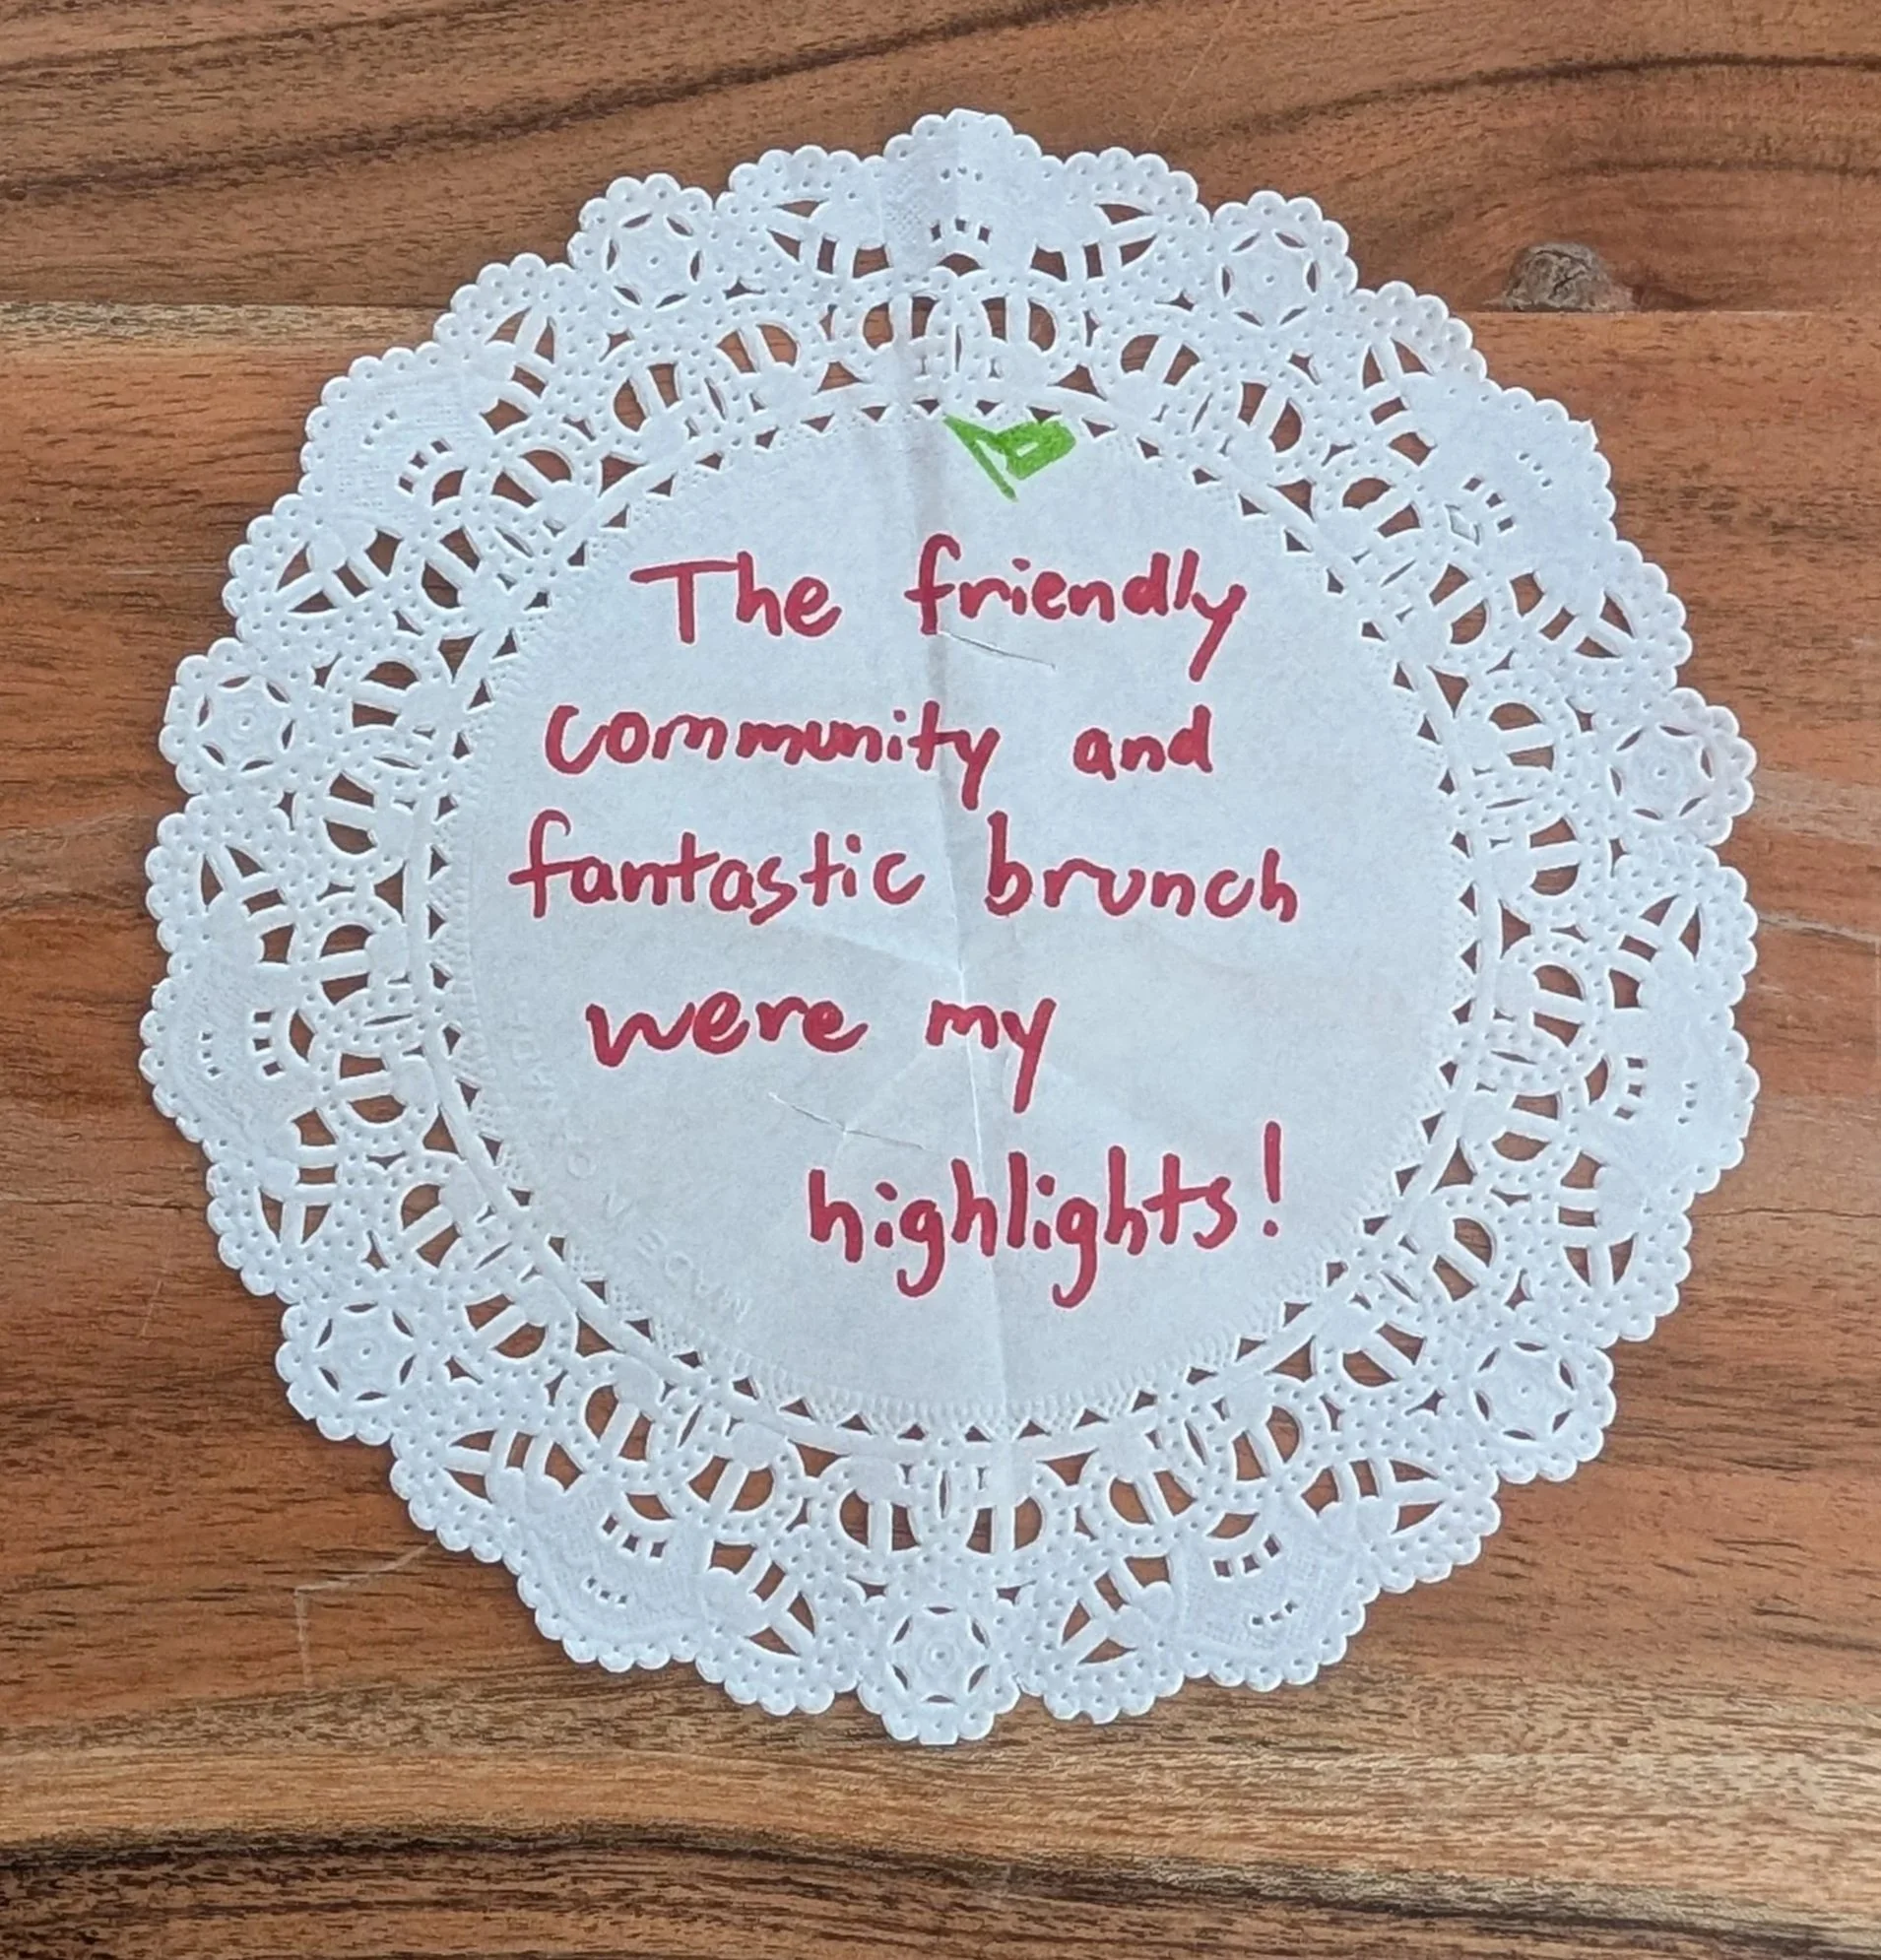 The friendly
community and
fantastic brunch
were my
highlights!